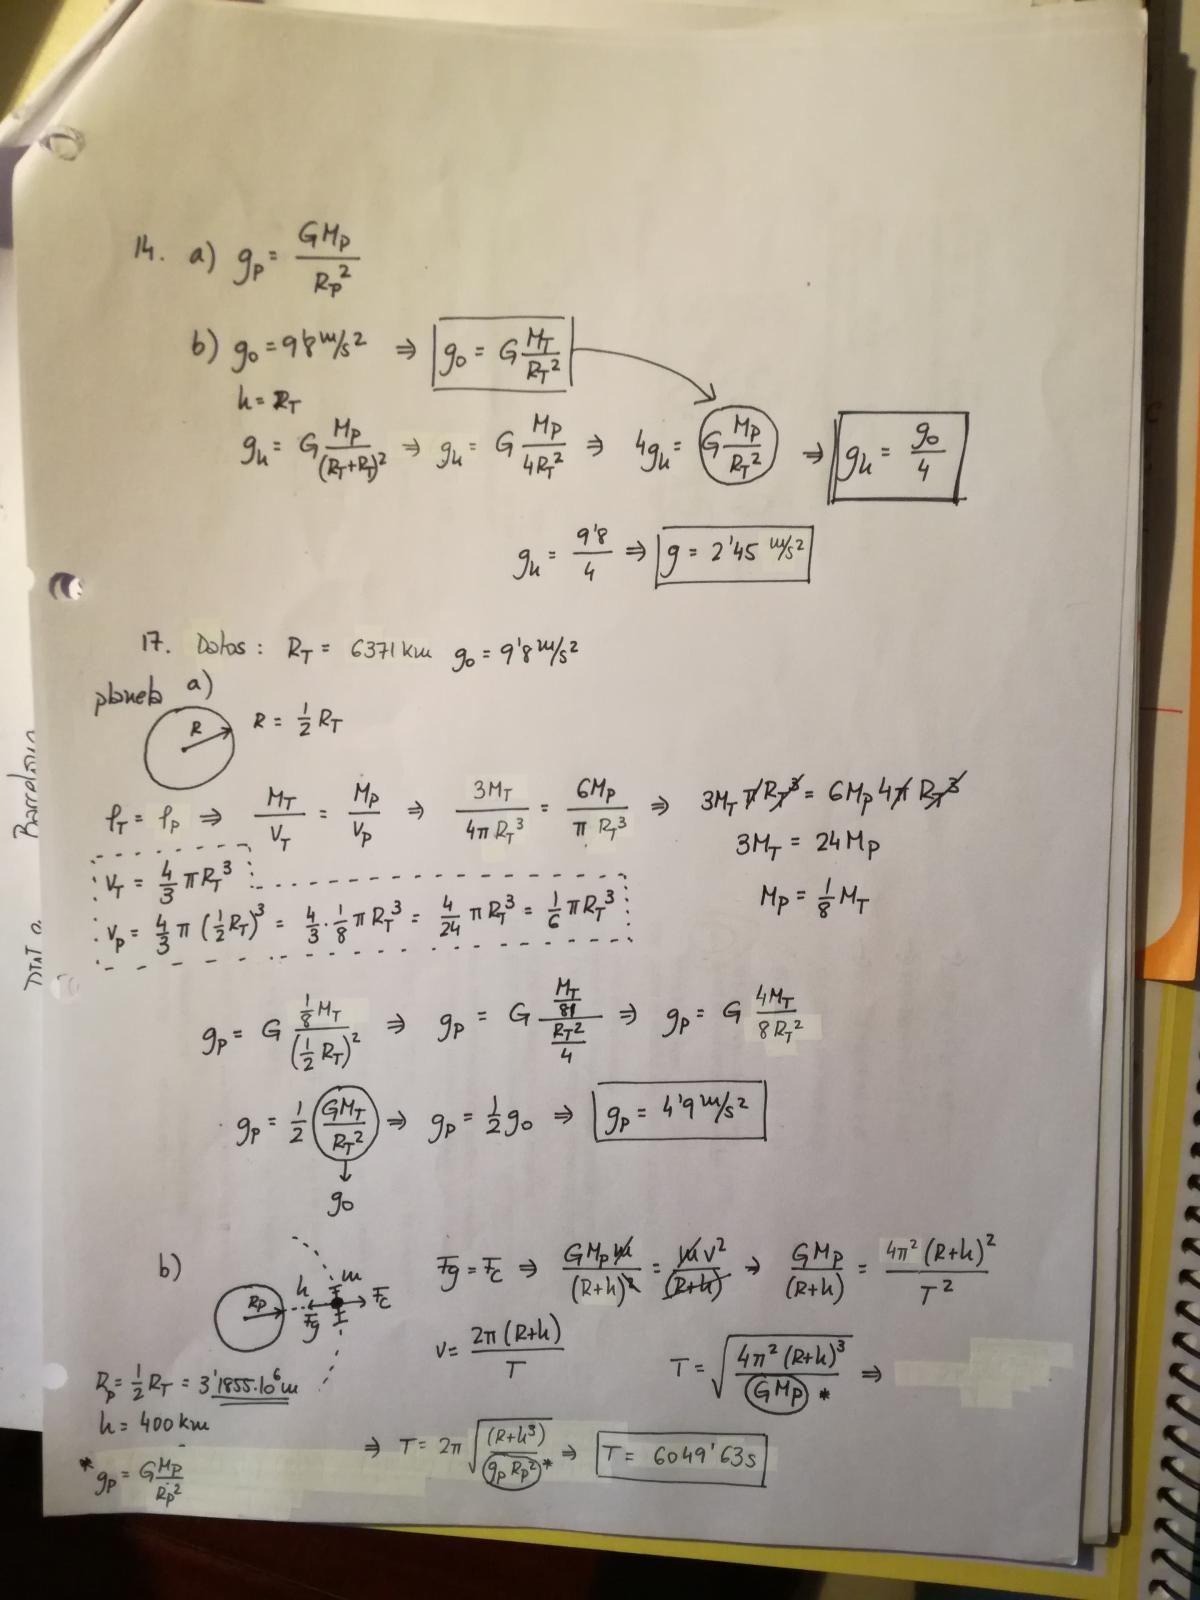 14. a) gp = GMp / Rp²
b) g₀ = 9'8 m/s² ⇒ g₀ = G MT / RT²
h = RT
gh = G Mp / (RT+RT)² ⇒ gh = G Mp / 4RT² ⇒ 4gh = G Mp / RT² ⇒ gh = g₀ / 4
gh = 9'8 / 4 ⇒ g = 2'45 m/s²
17. Datos: RT = 6371 km g₀ = 9'8 m/s²
planeta a)
R R = 1/2 RT
ρT = ρp ⇒ MT / VT = Mp / Vp ⇒ 3MT / 4πRT³ = 6Mp / πRT³ ⇒ 3MT π RT³ = 6Mp 4π RT³
3MT = 24Mp
VT = 4/3 πRT³
Mp = 1/8 MT
Vp = 4/3 π (1/2 RT)³ = 4/3 · 1/8 π RT³ = 4/24 πRT³ = 1/6 πRT³
gp = G 1/8 MT / (1/2 RT)² ⇒ gp = G (MT / 8) / (RT² / 4) ⇒ gp = G 4MT / 8RT²
gp = 1/2 GMT / RT² ⇒ gp = 1/2 g₀ ⇒ gp = 4'9 m/s²
↓
g₀
b) Fg = Fc ⇒ GMp m / (R+h)² = m v² / (R+h) ⇒ GMp / (R+h) = 4π² (R+h)² / T²
Rp h m Fg Fc
v = 2π (R+h) / T
T = √(4π² (R+h)³ / GMp) * ⇒
Rp = 1/2 RT = 3'1855·10⁶ m
h = 400 km
⇒ T = 2π √((R+h³) / gp Rp²) * ⇒ T = 6049'63 s
* gp = G Mp / Rp²